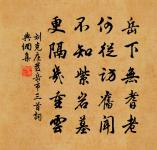 岳下無耆老
何從訪舊聞
不知紫岩墓
更隔幾重雲
劉克庄岳市三首詞
典網集